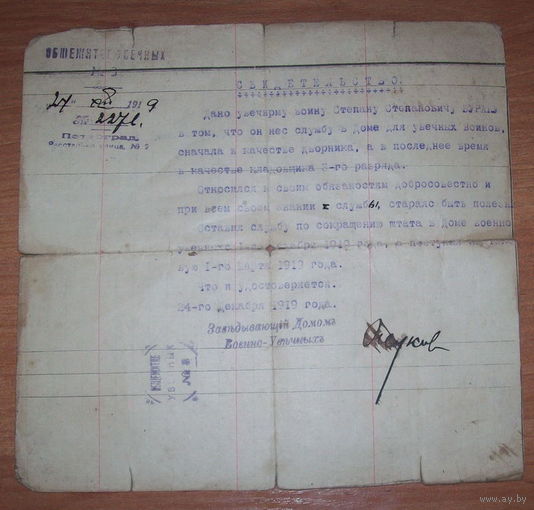 ОБЩЕЖИТ УВЕЧНЫХ
№ 3
"24" XII 1919
№ 2271.
Петроград.
улица, № 2
СВИДЕТЕЛЬСТВО.
Дано увечному воину Степану Степановичу
в том, что он нес службу в Доме для увечных воинов,
сначала в качестве дворника, а в последнее время
в качестве кладовщика 3-го разряда.
Относился к своим обязанностям добросовестно и
при всем своем знании службы, старался быть полезн
Оставил службу по сокращению штата в Доме военно
увечных 1919 года, а поступил
ную I-го марта 1919 года.
Что и удостоверяется.
24-го декабря 1919 года.
Завѣдывающій Домомъ
Военно-Увѣчныхъ
ОБЩЕЖИТІЕ
УВѢЧНЫХ
№ 3
www.ay.by